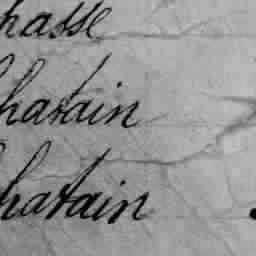 hasse
Chatain
Chatain